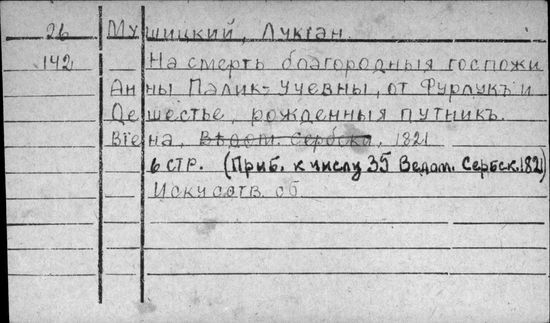 26 Мушицкий, Лукіан.
142 На смерть благородныя госпожи
Анны Палик-Учевны, от Фурлукъ и
Дешестье, рожденныя путникъ.
Віена, Вѣдом. Сербска, 1821
6 стр. (Приб. к числу 35 Ведом. Сербск. 1821)
Искусств. об